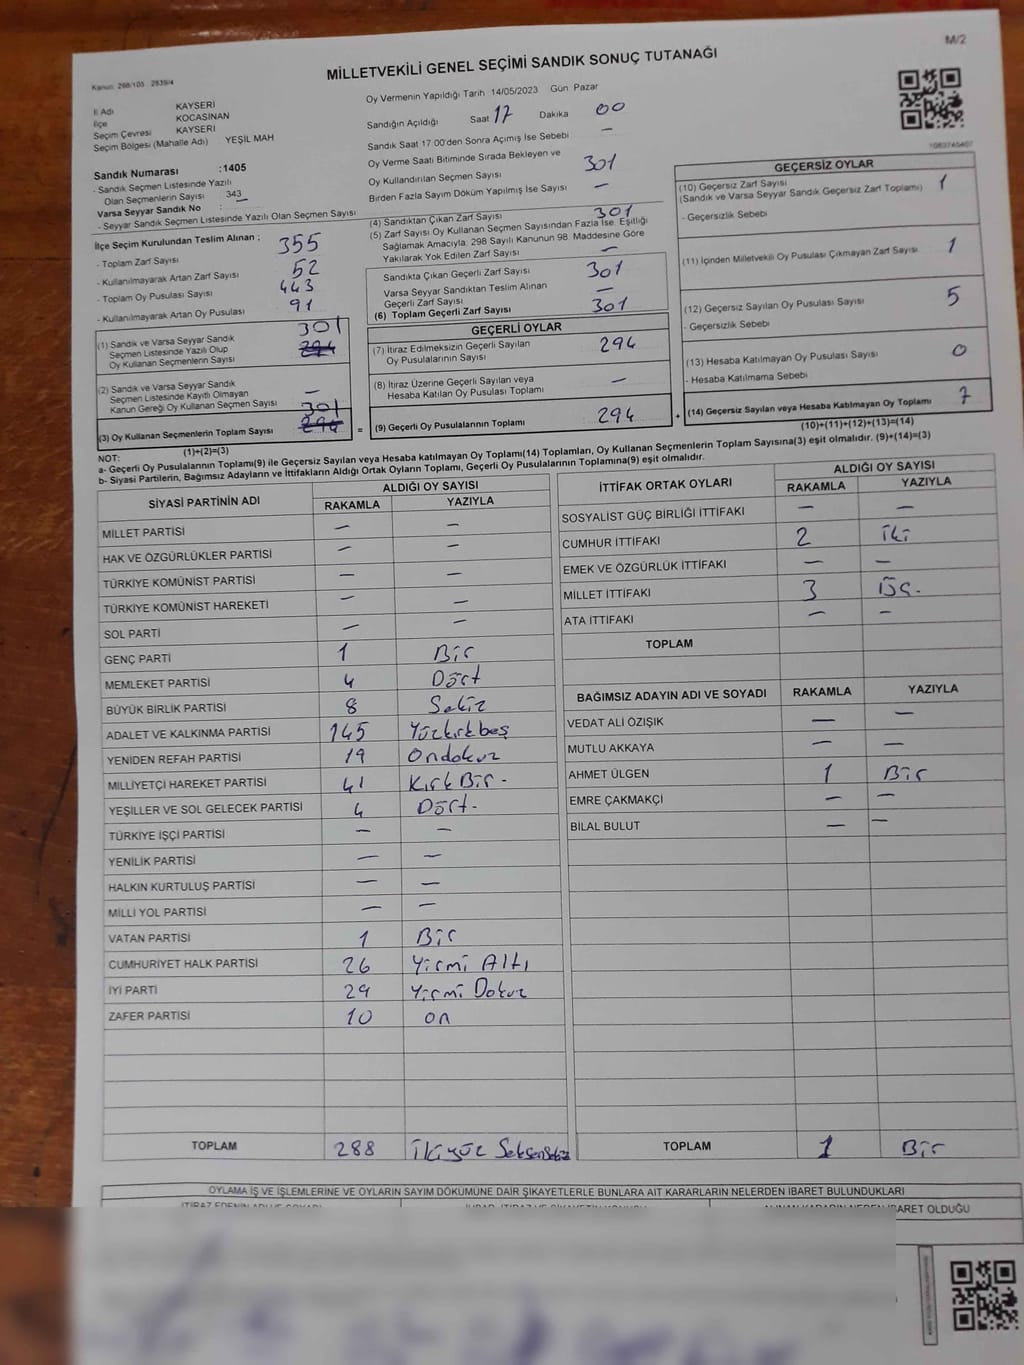 M/2
Kanun: 298/105 2839/4
MİLLETVEKİLİ GENEL SEÇİMİ SANDIK SONUÇ TUTANAĞI
İl Adı KAYSERİ
İlçe KOCASİNAN
Seçim Çevresi KAYSERİ
Seçim Bölgesi (Mahalle Adı) YEŞİL MAH
Sandık Numarası :1405
- Sandık Seçmen Listesinde Yazılı
Olan Seçmenlerin Sayısı 343
Varsa Seyyar Sandık No :
- Seyyar Sandık Seçmen Listesinde Yazılı Olan Seçmen Sayısı
İlçe Seçim Kurulundan Teslim Alınan ;
- Toplam Zarf Sayısı 355
- Kullanılmayarak Artan Zarf Sayısı 52
- Toplam Oy Pusulası Sayısı 443
- Kullanılmayarak Artan Oy Pusulası 91
301
(1) Sandık ve Varsa Seyyar Sandık
Seçmen Listesinde Yazılı Olup 294
Oy Kullanan Seçmenlerin Sayısı
(2) Sandık ve Varsa Seyyar Sandık
Seçmen Listesinde Kayıtlı Olmayan –
Kanun Gereği Oy Kullanan Seçmen Sayısı
301
(3) Oy Kullanan Seçmenlerin Toplam Sayısı 294
(1)+(2)=(3)
Oy Vermenin Yapıldığı Tarih 14/05/2023 Gün Pazar
Sandığın Açıldığı Saat 17 Dakika 00
Sandık Saat 17.00'den Sonra Açımış İse Sebebi –
Oy Verme Saati Bitiminde Sırada Bekleyen ve
Oy Kullandırılan Seçmen Sayısı 301
Birden Fazla Sayım Döküm Yapılmış İse Sayısı –
(4) Sandıktan Çıkan Zarf Sayısı 301
(5) Zarf Sayısı Oy Kullanan Seçmen Sayısından Fazla İse, Eşitliği
Sağlamak Amacıyla, 298 Sayılı Kanunun 98. Maddesine Göre
Yakılarak Yok Edilen Zarf Sayısı –
Sandıkta Çıkan Geçerli Zarf Sayısı 301
Varsa Seyyar Sandıktan Teslim Alınan
Geçerli Zarf Sayısı –
(6) Toplam Geçerli Zarf Sayısı 301
GEÇERLİ OYLAR
(7) İtiraz Edilmeksizin Geçerli Sayılan
Oy Pusulalarının Sayısı 294
(8) İtiraz Üzerine Geçerli Sayılan veya
Hesaba Katılan Oy Pusulası Toplamı –
= (9) Geçerli Oy Pusulalarının Toplamı 294 +
GEÇERSİZ OYLAR
(10) Geçersiz Zarf Sayısı
(Sandık ve Varsa Seyyar Sandık Geçersiz Zarf Toplamı) 1
- Geçersizlik Sebebi
(11) İçinden Milletvekili Oy Pusulası Çıkmayan Zarf Sayısı 1
(12) Geçersiz Sayılan Oy Pusulası Sayısı 5
- Geçersizlik Sebebi
(13) Hesaba Katılmayan Oy Pusulası Sayısı 0
- Hesaba Katılmama Sebebi
(14) Geçersiz Sayılan veya Hesaba Katılmayan Oy Toplamı 7
(10)+(11)+(12)+(13)=(14)
NOT:
a- Geçerli Oy Pusulalarının Toplamı(9) ile Geçersiz Sayılan veya Hesaba katılmayan Oy Toplamı(14) Toplamları, Oy Kullanan Seçmenlerin Toplam Sayısına(3) eşit olmalıdır. (9)+(14)=(3)
b- Siyasi Partilerin, Bağımsız Adayların ve İttifakların Aldığı Ortak Oyların Toplamı, Geçerli Oy Pusulalarının Toplamına(9) eşit olmalıdır.
SİYASİ PARTİNİN ADI ALDIĞI OY SAYISI
RAKAMLA YAZIYLA
MİLLET PARTİSİ – –
HAK VE ÖZGÜRLÜKLER PARTİSİ – –
TÜRKİYE KOMÜNİST PARTİSİ – –
TÜRKİYE KOMÜNİST HAREKETİ – –
SOL PARTİ – –
GENÇ PARTİ 1 Bir
MEMLEKET PARTİSİ 4 Dört
BÜYÜK BİRLİK PARTİSİ 8 Sekiz
ADALET VE KALKINMA PARTİSİ 145 Yüzkırkbeş
YENİDEN REFAH PARTİSİ 19 Ondokuz
MİLLİYETÇİ HAREKET PARTİSİ 41 Kırk Bir -
YEŞİLLER VE SOL GELECEK PARTİSİ 4 Dört -
TÜRKİYE İŞÇİ PARTİSİ – –
YENİLİK PARTİSİ – –
HALKIN KURTULUŞ PARTİSİ – –
MİLLİ YOL PARTİSİ – –
VATAN PARTİSİ 1 Bir
CUMHURİYET HALK PARTİSİ 26 Yirmi Altı
İYİ PARTİ 29 Yirmi Dokuz
ZAFER PARTİSİ 10 on
TOPLAM 288 ikiyüz Seksensekiz
İTTİFAK ORTAK OYLARI ALDIĞI OY SAYISI
RAKAMLA YAZIYLA
SOSYALİST GÜÇ BİRLİĞİ İTTİFAKI – –
CUMHUR İTTİFAKI 2 iki
EMEK VE ÖZGÜRLÜK İTTİFAKI – –
MİLLET İTTİFAKI 3 Üç.
ATA İTTİFAKI – –
TOPLAM
BAĞIMSIZ ADAYIN ADI VE SOYADI RAKAMLA YAZIYLA
VEDAT ALİ ÖZIŞIK – –
MUTLU AKKAYA – –
AHMET ÜLGEN 1 Bir
EMRE ÇAKMAKÇİ – –
BİLAL BULUT – –
TOPLAM 1 Bir
OYLAMA İŞ VE İŞLEMLERİNE VE OYLARIN SAYIM DÖKÜMÜNE DAİR ŞİKAYETLERLE BUNLARA AİT KARARLARIN NELERDEN İBARET BULUNDUKLARI